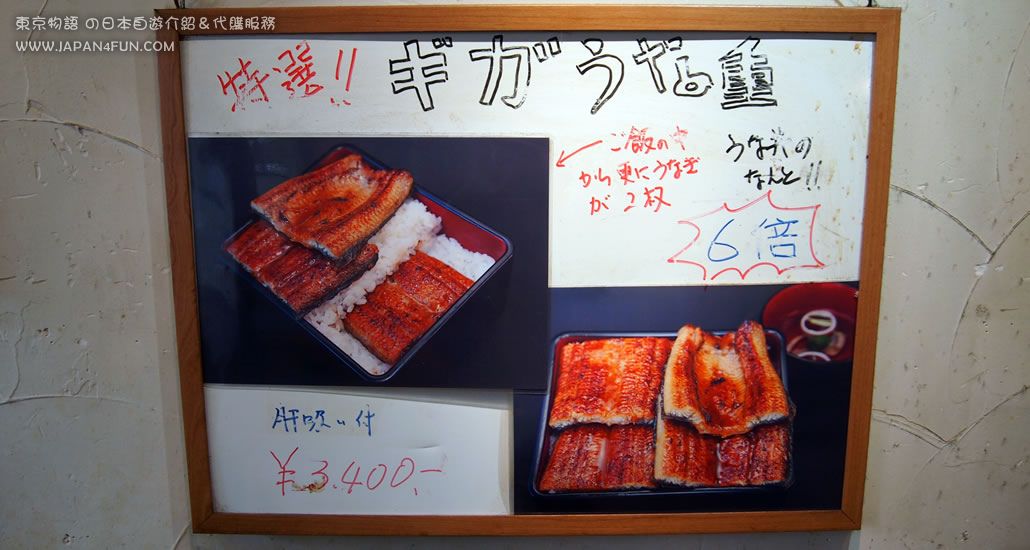 東京物語 の日本自遊介紹＆代購服務
WWW.JAPAN4FUN.COM
特選!! ギガうな重
ご飯の中
から更にうなぎ
が2枚
うな丼の
なんと!!
6倍
肝吸い付
¥3,400,-